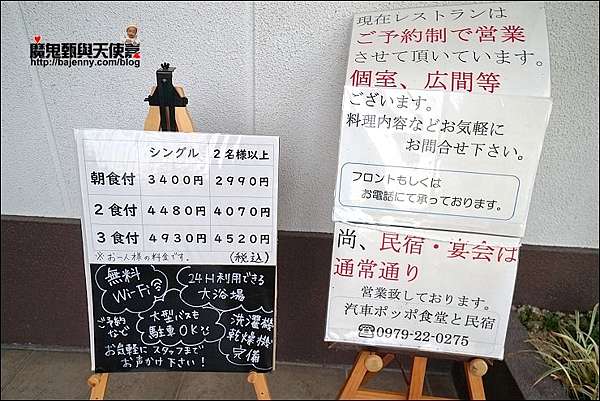 魔鬼甄與天使嘉
http://bajenny.com/blog
シングル　2名様以上
朝食付　3400円　2990円
2食付　4480円　4070円
3食付　4930円　4520円
※お一人様の料金です。　(税込)
無料
Wi-Fi
24H利用できる
大浴場
ご予約
など
大型バスも
駐車OKです
洗濯機
乾燥機
完備
お気軽にスタッフまで
お声かけ下さい!
現在レストランは
ご予約制で営業
させて頂いています。
個室、広間等
ございます。
料理内容などお気軽に
お問合せ下さい。
フロントもしくは
お電話にて承っております。
尚、民宿・宴会は
通常通り
営業致しております。
汽車ポッポ食堂と民宿
☎0979-22-0275